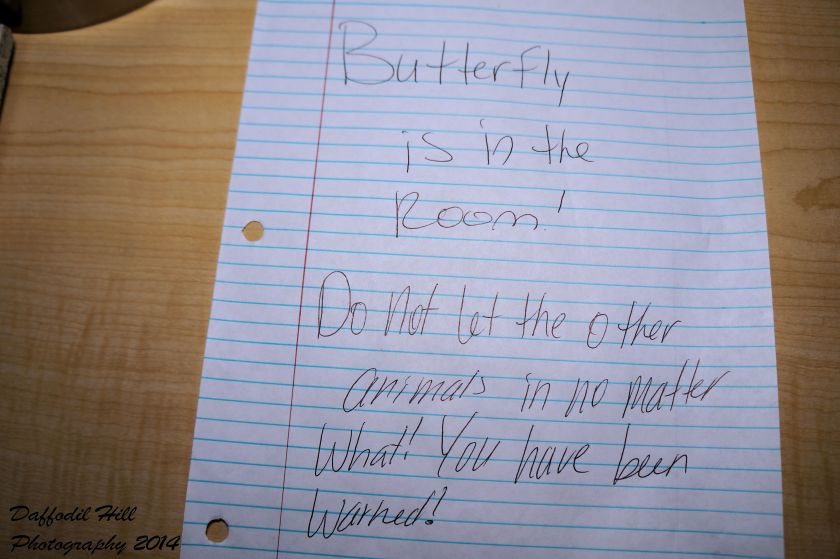 Butterfly
is in the
Room!
Do Not let the other
animals in no matter
What! You have been
Warned!
Daffodil Hill
Photography 2014